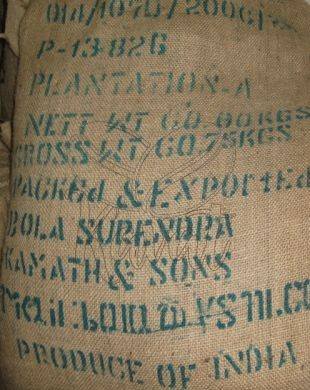 014/1070/2006
P-13826
PLANTATION-A
NETT WT 60.00KGS
GROSS WT 60.75KGS
PACKEd & EXPOrtEd
BOLA SURENDRA
KAMATH & SONS
PRODUCE OF INDIA